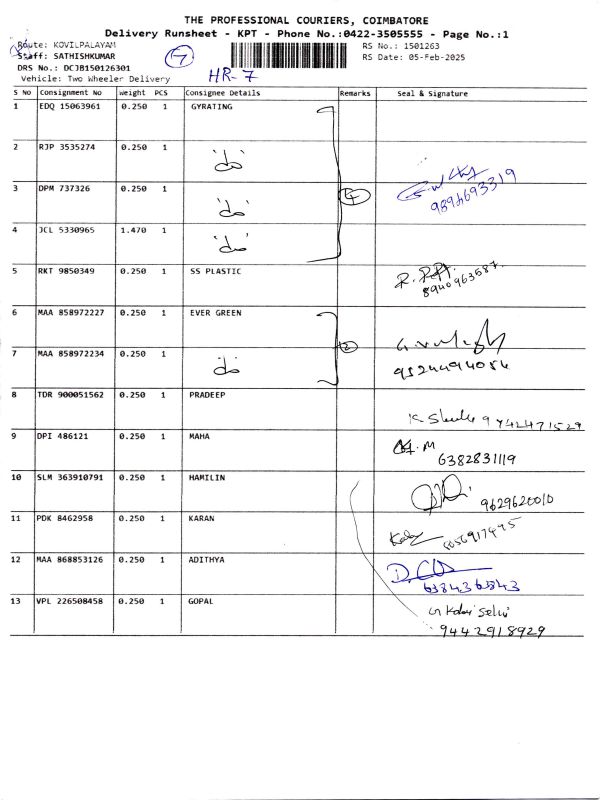 THE PROFESSIONAL COURIERS, COIMBATORE
Delivery Runsheet - KPT - Phone No.:0422-3505555 - Page No.:1
Route: KOVILPALAYAM RS No.: 1501263
Staff: SATHISHKUMAR 7 RS Date: 05-Feb-2025
DRS No.: DCJB150126301 HR-7
Vehicle: Two Wheeler Delivery
S No Consignment No Weight PCS Consignee Details Remarks Seal & Signature
1 EDQ 15063961 0.250 1 GYRATING
2 RJP 3535274 0.250 1 "do"
3 DPM 737326 0.250 1 "do" 4 9894693319
4 JCL 5330965 1.470 1 "do"
5 RKT 9850349 0.250 1 SS PLASTIC 8940963687
6 MAA 858972227 0.250 1 EVER GREEN
7 MAA 858972234 0.250 1 "do" 2 9524494054
8 TDR 900051562 0.250 1 PRADEEP 9742471529
9 DPI 486121 0.250 1 MAHA M
6382831119
10 SLM 363910791 0.250 1 HAMILIN 9629620010
11 PDK 8462958 0.250 1 KARAN
12 MAA 868853126 0.250 1 ADITHYA
13 VPL 226508458 0.250 1 GOPAL G Kalai Selvi
9442918929